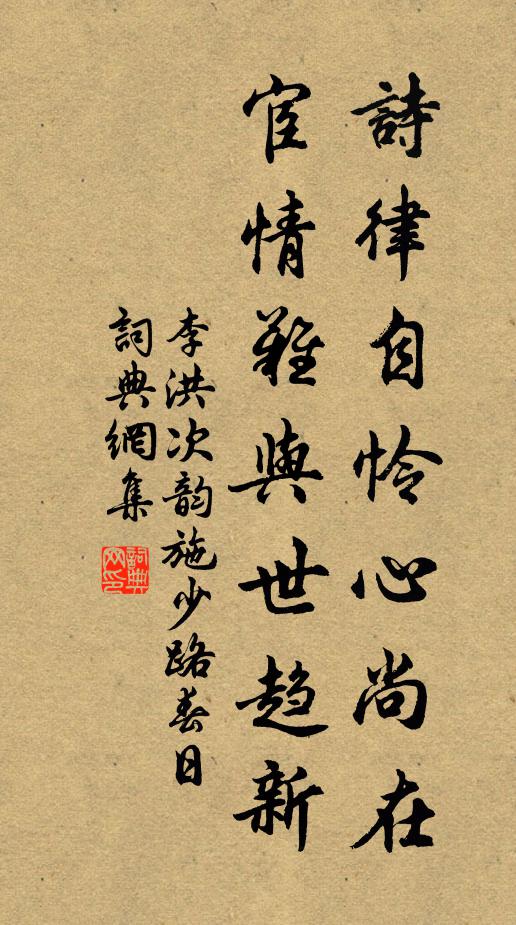 詩律自怜心尚在
宦情難與世趋新
李洪次韵施少路春日
詞典網集
詞典
网印